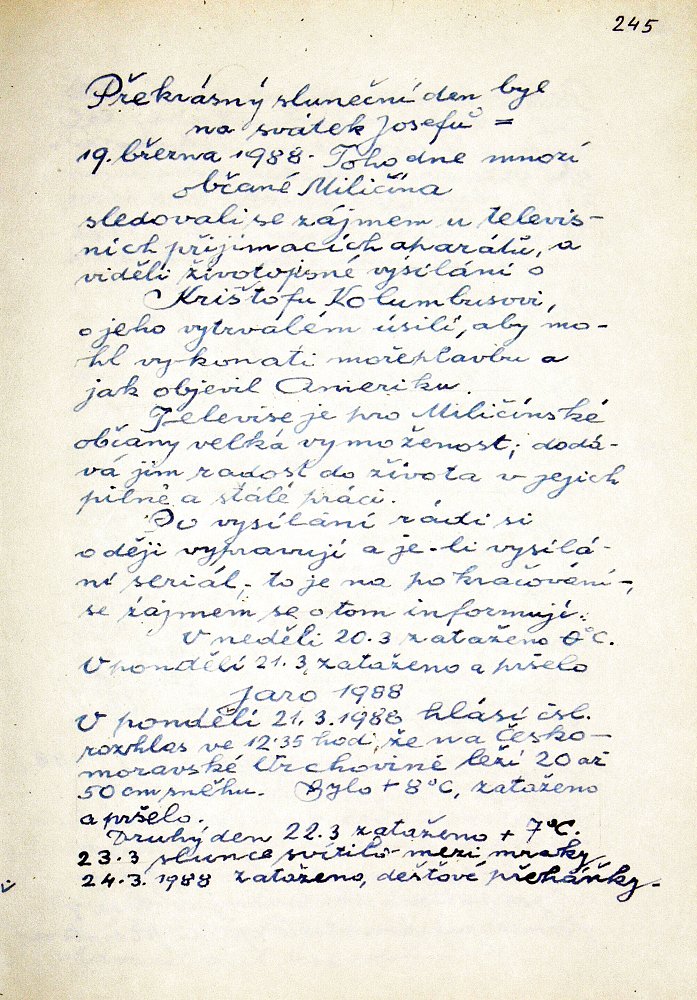 245
Překrásný sluneční den byl
na svátek Josefů =
19. března 1988. Toho dne mnozí
občané Miličína
sledovali se zájmem u televis-
ních přijímacích aparátů, a
viděli životopisné vysílání o
Krištofu Kolumbusovi,
o jeho vytrvalém úsilí, aby mo-
hl vykonati mořeplavbu a
jak objevil Ameriku.
Televise je pro Miličínské
občany velká vymoženost; dodá-
vá jim radost do života v jejich
pilné a stálé práci.
Po vysílání rádi si
o ději vypravují a je-li vysílá-
ní seriál, - to je na pokračování -,
se zájmem se o tom informují.
V neděli 20.3 zataženo 0°C.
V pondělí 21.3, zataženo a pršelo
Jaro 1988
V pondělí 21.3.1988 hlásí čsl.
rozhlas ve 12:35 hodi, že na Česko-
moravské Vrchovině leží 20 až
50 cm sněhu. Bylo + 8°C, zataženo
a pršelo.
Druhý den 22.3 zataženo + 7°C.
23.3 slunce svítilo mezi mraky
24.3. 1988 zataženo, dešťové přeháňky.